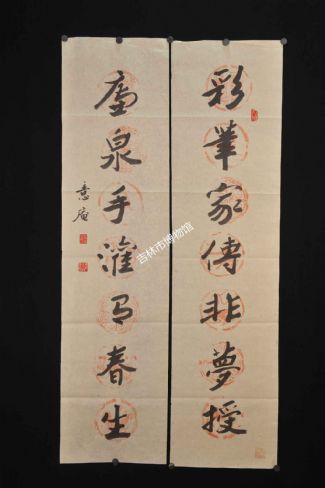 彩筆家傳非夢授
泉手灌有春生
意庵
吉林市博物馆